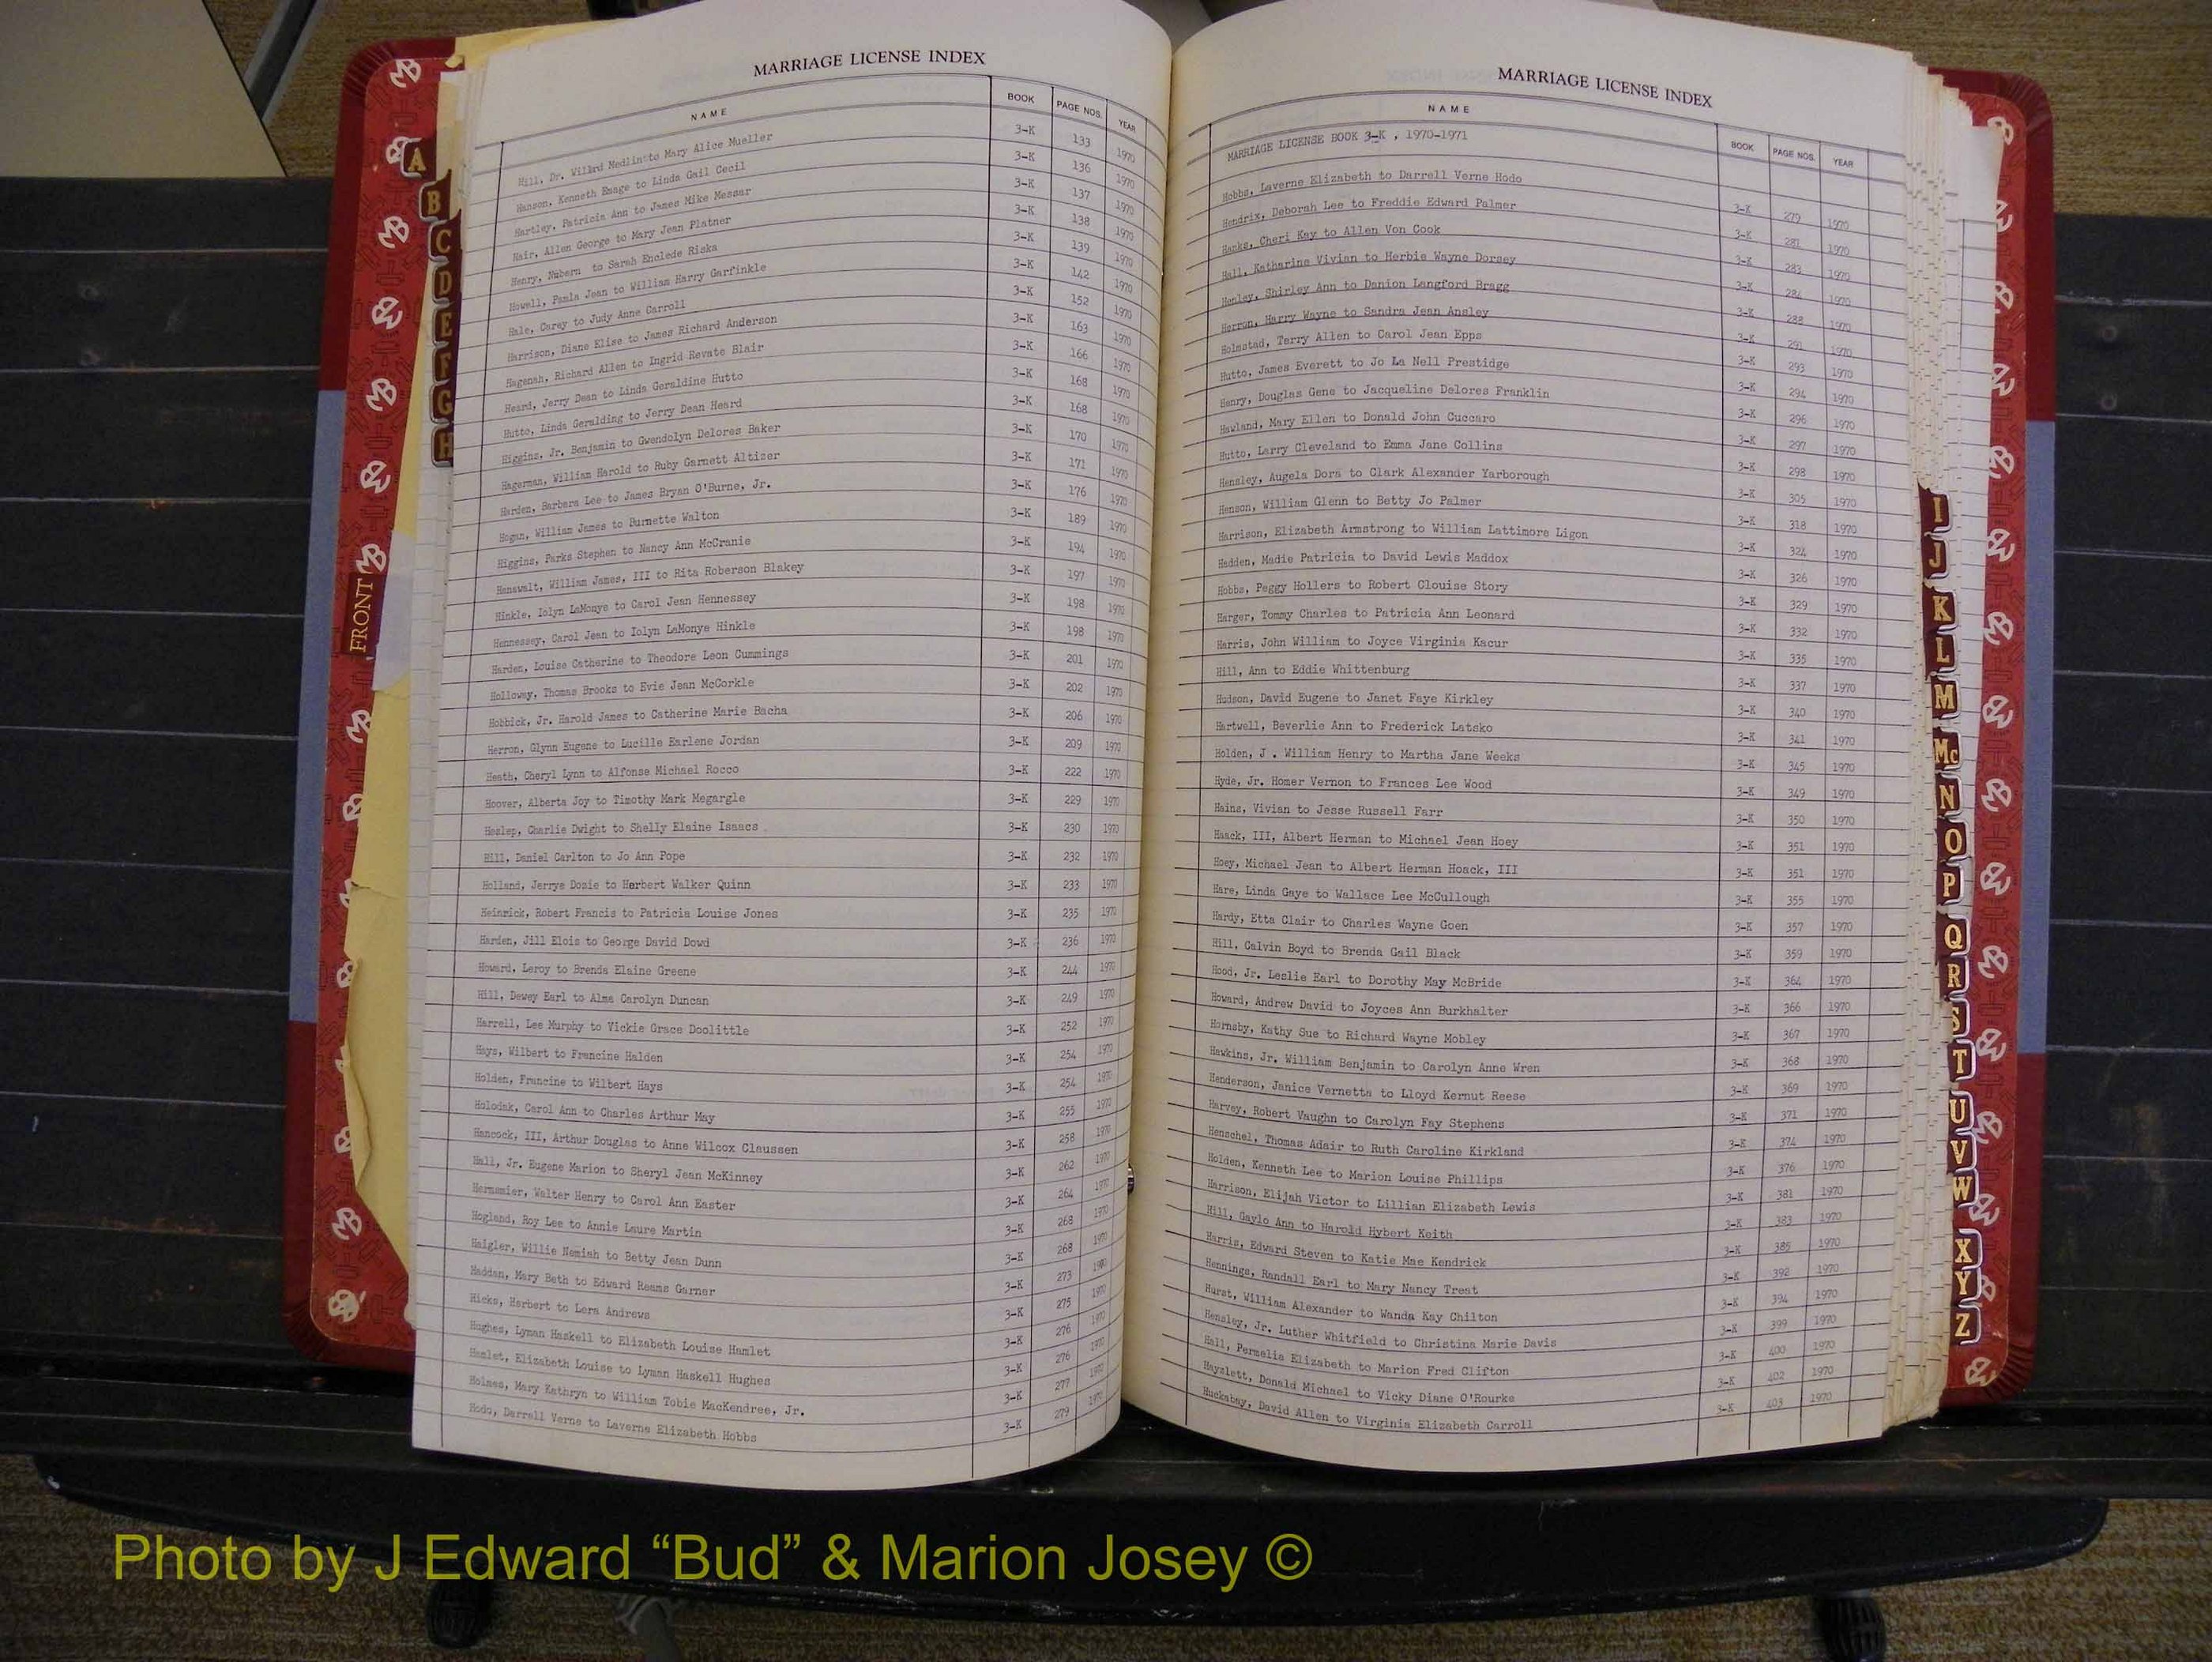 MARRIAGE LICENSE INDEX
NAME BOOK PAGE NOS. YEAR
Hill, Dr. Willard Medlin to Mary Alice Mueller 3-K 133 1970
Hanson, Kenneth Emage to Linda Gail Cecil 3-K 136 1970
Hartley, Patricia Ann to James Mike Messar 3-K 137 1970
Hair, Allen George to Mary Jean Platner 3-K 138 1970
Henry, Nubern to Sarah Enclede Riska 3-K 139 1970
Howell, Paula Jean to William Harry Garfinkle 3-K 142 1970
Hale, Carey to Judy Anne Carroll 3-K 152 1970
Harrison, Diane Elise to James Richard Anderson 3-K 163 1970
Hagenah, Richard Allen to Ingrid Revate Blair 3-K 166 1970
Heard, Jerry Dean to Linda Geraldine Hutto 3-K 168 1970
Hutto, Linda Geralding to Jerry Dean Heard 3-K 168 1970
Higgins, Jr. Benjamin to Gwendolyn Delores Baker 3-K 170 1970
Hagerman, William Harold to Ruby Garnett Altizer 3-K 171 1970
Harden, Barbara Lee to James Bryan O'Burne, Jr. 3-K 176 1970
Hogan, William James to Burnette Walton 3-K 189 1970
Higgins, Parks Stephen to Nancy Ann McCranie 3-K 194 1970
Hanawalt, William James, III to Rita Roberson Blakey 3-K 197 1970
Hinkle, Iolyn LaMonye to Carol Jean Hennessey 3-K 198 1970
Hennessey, Carol Jean to Iolyn LaMonye Hinkle 3-K 198 1970
Harden, Louise Catherine to Theodore Leon Cummings 3-K 201 1970
Holloway, Thomas Brooks to Evie Jean McCorkle 3-K 202 1970
Hobbick, Jr. Harold James to Catherine Marie Bacha 3-K 206 1970
Herron, Glynn Eugene to Lucille Earlene Jordan 3-K 209 1970
Heath, Cheryl Lynn to Alfonse Michael Rocco 3-K 222 1970
Hoover, Alberta Joy to Timothy Mark Megargle 3-K 229 1970
Heslep, Charlie Dwight to Shelly Elaine Isaacs 3-K 230 1970
Hill, Daniel Carlton to Jo Ann Pope 3-K 232 1970
Holland, Jerrye Dozie to Herbert Walker Quinn 3-K 233 1970
Heinrick, Robert Francis to Patricia Louise Jones 3-K 235 1970
Harden, Jill Elois to George David Dowd 3-K 236 1970
Howard, Leroy to Brenda Elaine Greene 3-K 244 1970
Hill, Dewey Earl to Alma Carolyn Duncan 3-K 249 1970
Harrell, Lee Murphy to Vickie Grace Doolittle 3-K 252 1970
Hays, Wilbert to Francine Halden 3-K 254 1970
Holden, Francine to Wilbert Hays 3-K 254 1970
Holodak, Carol Ann to Charles Arthur May 3-K 255 1970
Hancock, III, Arthur Douglas to Anne Wilcox Claussen 3-K 258 1970
Hall, Jr. Eugene Marion to Sheryl Jean McKinney 3-K 262 1970
Hermsmier, Walter Henry to Carol Ann Easter 3-K 264 1970
Hogland, Roy Lee to Annie Laure Martin 3-K 268 1970
Haigler, Willie Nemiah to Betty Jean Dunn 3-K 268 1970
Haddan, Mary Beth to Edward Reams Garner 3-K 273 1970
Hicks, Herbert to Lera Andrews 3-K 275 1970
Hughes, Lyman Haskell to Elizabeth Louise Hamlet 3-K 276 1970
Hamlet, Elizabeth Louise to Lyman Haskell Hughes 3-K 276 1970
Holmes, Mary Kathryn to William Tobie MacKendree, Jr. 3-K 277 1970
Hodo, Darrell Verne to Laverne Elizabeth Hobbs 3-K 279 1970
MARRIAGE LICENSE INDEX
NAME BOOK PAGE NOS. YEAR
MARRIAGE LICENSE BOOK 3-K , 1970-1971
Hobbs, Laverne Elizabeth to Darrell Verne Hodo 3-K 279 1970
Hendrix, Deborah Lee to Freddie Edward Palmer 3-K 281 1970
Hanks, Cheri Kay to Allen Von Cook 3-K 283 1970
Hall, Katharine Vivian to Herbie Wayne Dorsey 3-K 284 1970
Henley, Shirley Ann to Danion Langford Bragg 3-K 288 1970
Herron, Harry Wayne to Sandra Jean Ansley 3-K 291 1970
Holmstad, Terry Allen to Carol Jean Epps 3-K 293 1970
Hutto, James Everett to Jo La Nell Prestidge 3-K 294 1970
Henry, Douglas Gene to Jacqueline Delores Franklin 3-K 296 1970
Hawland, Mary Ellen to Donald John Cuccaro 3-K 297 1970
Hutto, Larry Cleveland to Emma Jane Collins 3-K 298 1970
Hensley, Augela Dora to Clark Alexander Yarborough 3-K 305 1970
Henson, William Glenn to Betty Jo Palmer 3-K 318 1970
Harrison, Elizabeth Armstrong to William Lattimore Ligon 3-K 324 1970
Hadden, Madie Patricia to David Lewis Maddox 3-K 326 1970
Hobbs, Peggy Hollers to Robert Clouise Story 3-K 329 1970
Harger, Tommy Charles to Patricia Ann Leonard 3-K 332 1970
Harris, John William to Joyce Virginia Kacur 3-K 335 1970
Hill, Ann to Eddie Whittenburg 3-K 337 1970
Hudson, David Eugene to Janet Faye Kirkley 3-K 340 1970
Hartwell, Beverlie Ann to Frederick Latsko 3-K 341 1970
Holden, J . William Henry to Martha Jane Weeks 3-K 345 1970
Hyde, Jr. Homer Vernon to Frances Lee Wood 3-K 349 1970
Hains, Vivian to Jesse Russell Farr 3-K 350 1970
Haack, III, Albert Herman to Michael Jean Hoey 3-K 351 1970
Hoey, Michael Jean to Albert Herman Hoack, III 3-K 351 1970
Hare, Linda Gaye to Wallace Lee McCullough 3-K 355 1970
Hardy, Etta Clair to Charles Wayne Goen 3-K 357 1970
Hill, Calvin Boyd to Brenda Gail Black 3-K 359 1970
Hood, Jr. Leslie Earl to Dorothy May McBride 3-K 364 1970
Howard, Andrew David to Joyces Ann Burkhalter 3-K 366 1970
Hornsby, Kathy Sue to Richard Wayne Mobley 3-K 367 1970
Hawkins, Jr. William Benjamin to Carolyn Anne Wren 3-K 368 1970
Henderson, Janice Vernetta to Lloyd Kernut Reese 3-K 369 1970
Harvey, Robert Vaughn to Carolyn Fay Stephens 3-K 371 1970
Henschel, Thomas Adair to Ruth Caroline Kirkland 3-K 374 1970
Holden, Kenneth Lee to Marion Louise Phillips 3-K 376 1970
Harrison, Elijah Victor to Lillian Elizabeth Lewis 3-K 381 1970
Hill, Gaylo Ann to Harold Hybert Keith 3-K 383 1970
Harris, Edward Steven to Katie Mae Kendrick 3-K 385 1970
Hennings, Randall Earl to Mary Nancy Trest 3-K 392 1970
Hurst, William Alexander to Wanda Kay Chilton 3-K 394 1970
Hensley, Jr. Luther Whitfield to Christina Marie Davis 3-K 399 1970
Hall, Permelia Elizabeth to Marion Fred Clifton 3-K 400 1970
Hayzlett, Donald Michael to Vicky Diane O'Rourke 3-K 402 1970
Huckabay, David Allen to Virginia Elizabeth Carroll 3-K 403 1970
A
B
C
D
E
F
G
H
FRONT
I
J
K
L
M
Mc
N
O
P
Q
R
S
T
U
V
W
X
Y
Z
Photo by J Edward “Bud” & Marion Josey ©